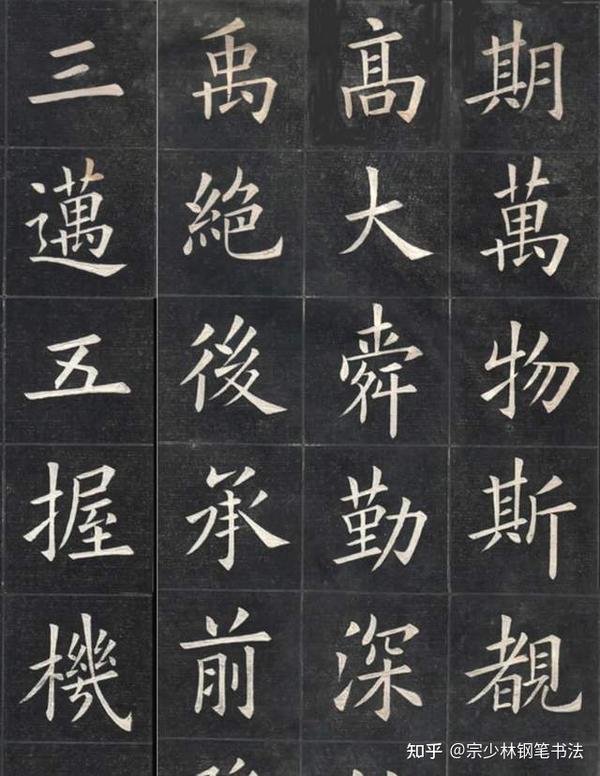 期萬物斯覩
高大舜勤深
禹絕後承前
三邁五握機
知乎 @宗少林钢笔书法